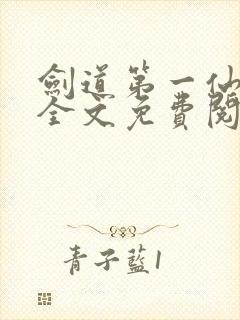 劍道第一仙
全文免費閱
青子藍1